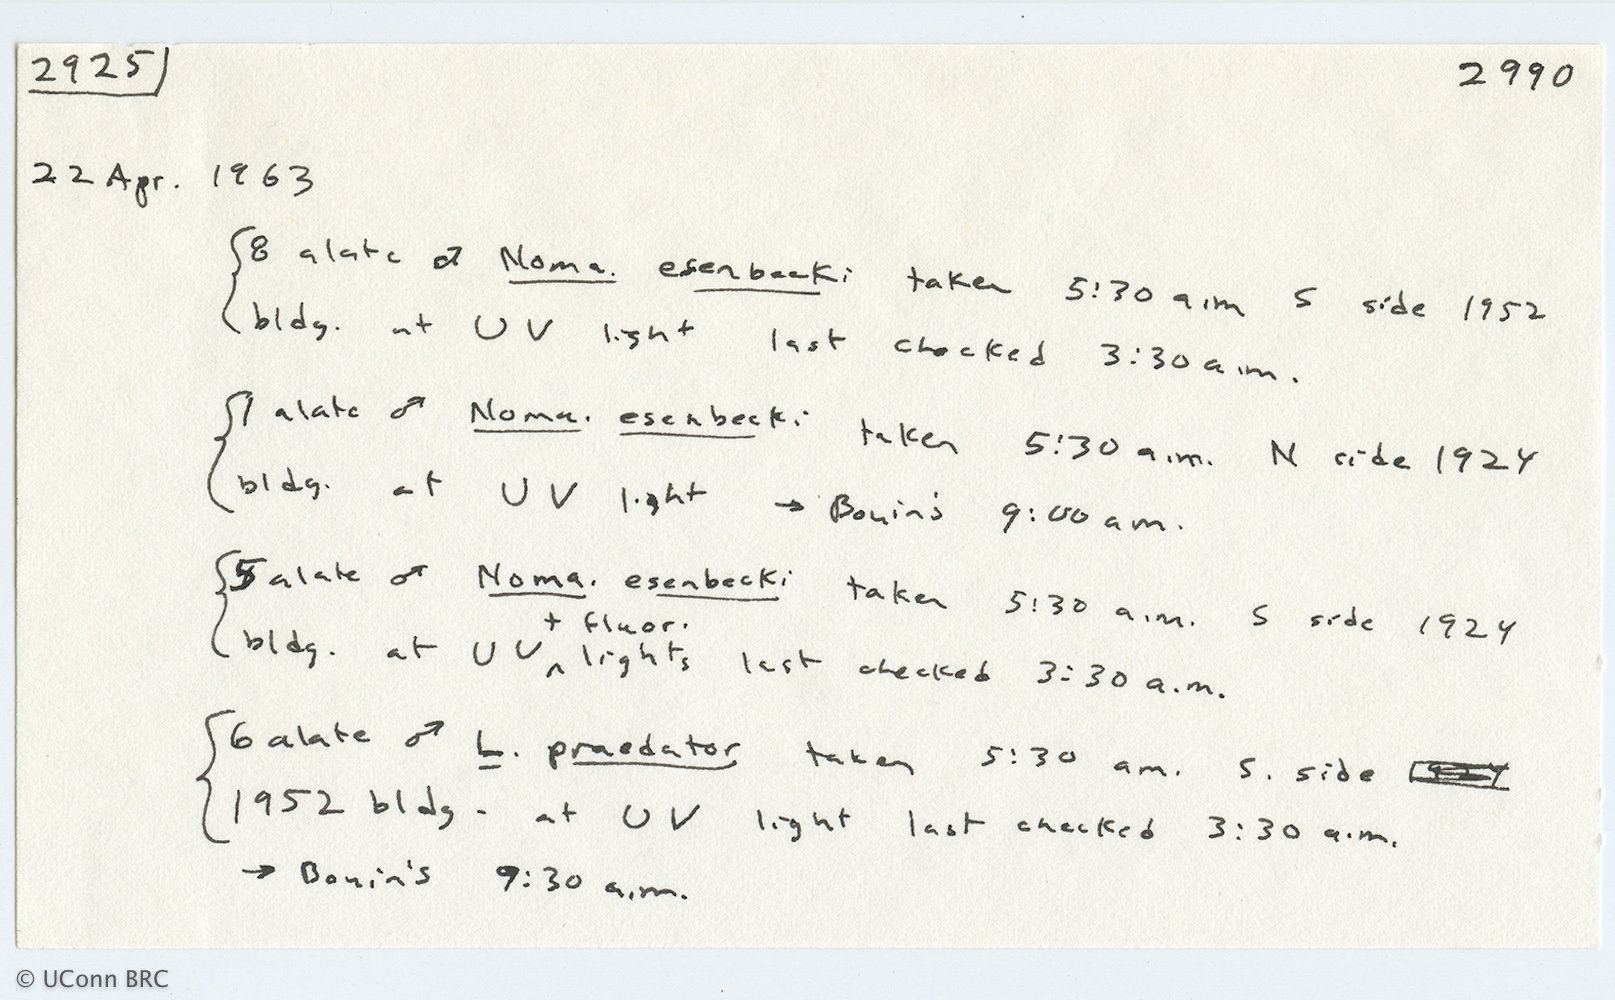 2925 2990
22 Apr. 1963
8 alate ♂ Noma. esenbecki taken 5:30 a.m. S side 1952
bldg. at UV light last checked 3:30 a.m.
1 alate ♂ Noma. esenbecki taken 5:30 a.m. N side 1924
bldg. at UV light → Bouin's 9:00 am.
5 alate ♂ Noma. esenbecki taken 5:30 a.m. S side 1924
+ fluor.
bldg. at UV ^ lights last checked 3:30 a.m.
6 alate ♂ L. praedator taken 5:30 am. S. side
1952 bldg. at UV light last checked 3:30 a.m.
→ Bouin's 9:30 a.m.
© UConn BRC